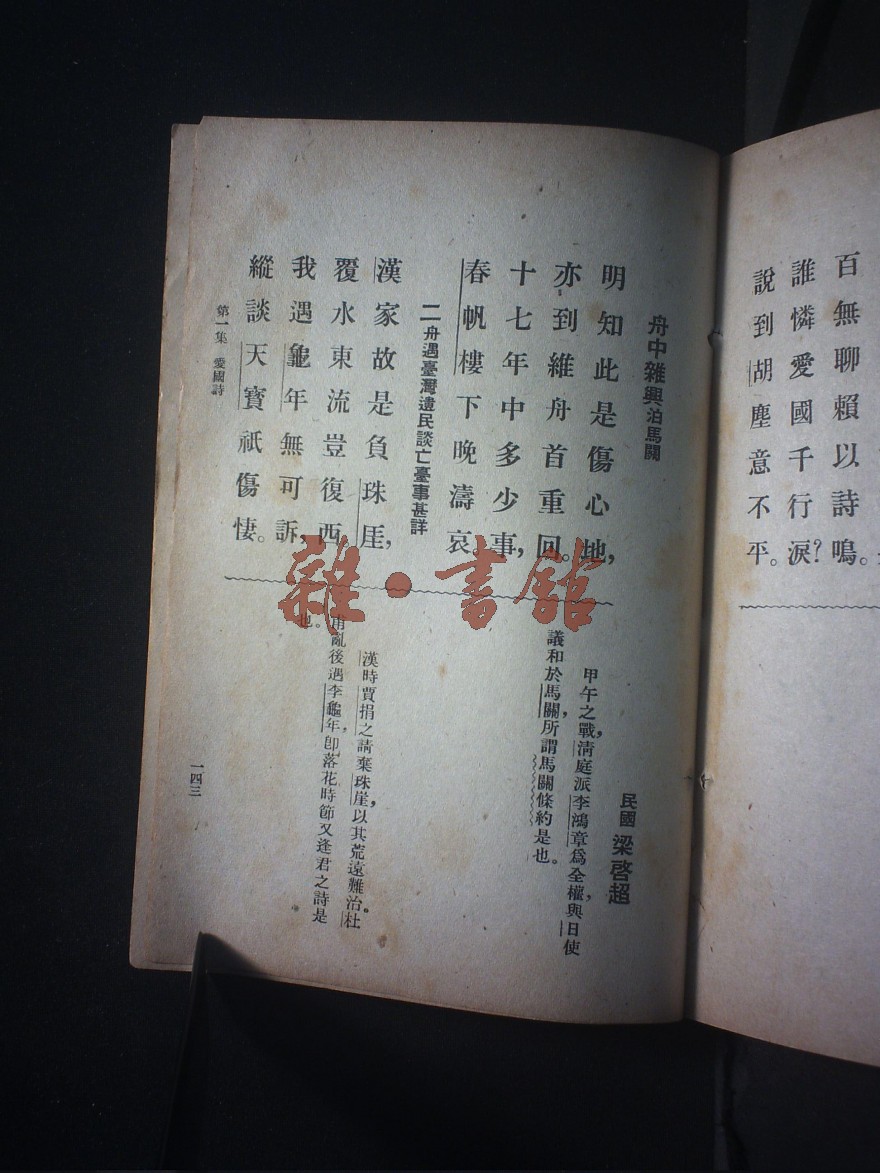 百無聊賴以詩鳴。
誰憐愛國千行淚？
說到胡塵意不平。
舟中雜興泊馬關
民國 梁啓超
明知此是傷心地，
亦到維舟首重回。
十七年中多少事，
春帆樓下晚濤哀。
甲午之戰，清庭派李鴻章爲全權，與日使
議和於馬關，所謂馬關條約是也。
二 舟遇臺灣遺民談亡臺事甚詳
漢家故是負珠厓，
覆水東流豈復西。
我遇龜年無可訴，
縱談天寶祇傷悽。
漢時賈捐之請棄珠崖，以其荒遠難治。杜
甫亂後遇李龜年，卽落花時節又逢君之詩是
也。
第一集 愛國詩
一四三
雜·書館